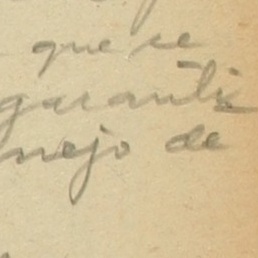 que se
garanti
nejo de